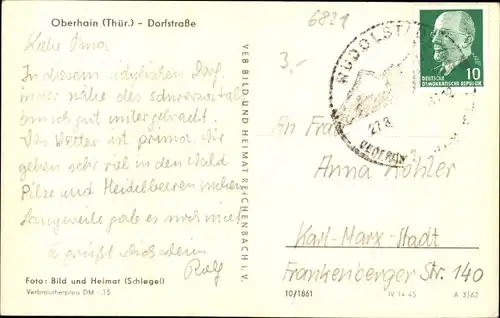 Oberhain (Thür.) - Dorfstraße
6821
3.-
Liebe Oma
In diesem idyllischen Dorf,
immer nahe des Schwarzatals
bin ich gut untergebracht.
Das Wetter ist prima. Wir
gehen sehr viel in den Wald
Pilze und Heidelbeeren suchen
Langweile gab es noch nicht
Es grüßt dich dein
Rolf
Foto: Bild und Heimat (Schlegel)
Verbraucherpreis DM -.15
VEB BILD UND HEIMAT REICHENBACH I. V.
RUDOLST
27.8
10
DEUTSCHE
DEMOKRATISCHE REPUBLIK
An Frau
Anna Köhler
Karl-Marx-Stadt
Frankenberger Str. 140
10/1861
IV 14 45
A 3/62